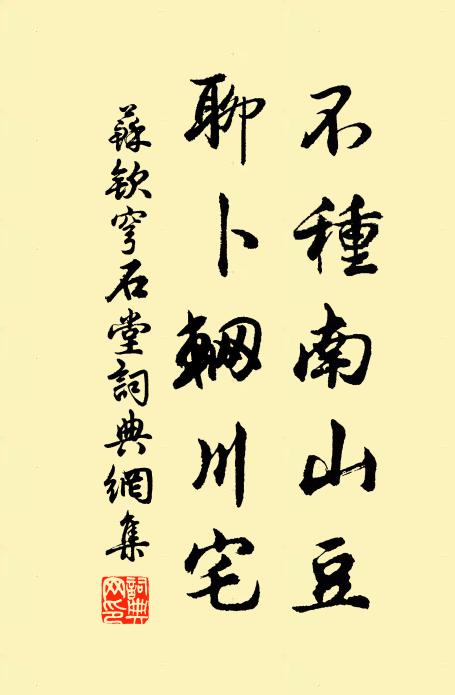 不種南山豆
聊卜輞川宅
蘇欽穹石堂詞典網集
詞典
网印